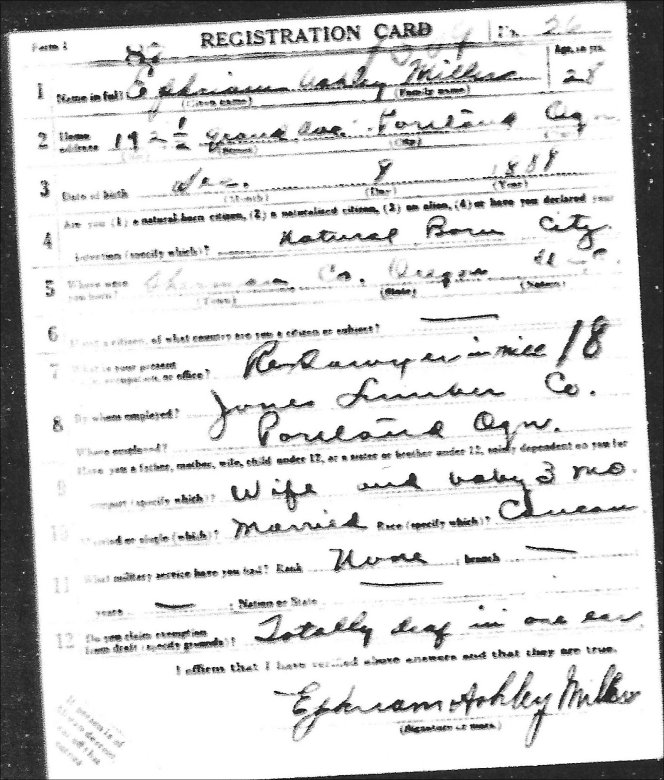 Form 1 REGISTRATION CARD No. 26
Age, in yrs.
1 Name in full Ephriam Ashley Miller 28
(Given name) (Family name)
2 Home address 192 1/2 Grand Ave. Portland Ogn
(No.) (Street) (City)
3 Date of birth Dec. 8 1888
(Month) (Day) (Year)
Are you (1) a natural-born citizen, (2) a naturalized citizen, (3) an alien, (4) or have you declared your
4 intention (specify which)? Natural Born City
5 Where were you born? Co. Oregon
(Town) (State) (Nation)
6 If not a citizen, of what country are you a citizen or subject?
7 What is your present trade, occupation, or office? Re Sawyer in mill 18
8 By whom employed? Jones Lumber Co.
Where employed? Portland Ogn.
Have you a father, mother, wife, child under 12, or a sister or brother under 12, solely dependent on you for
9 support (specify which)? Wife and baby 3 mo.
10 Married or single (which)? Married Race (specify which)? Caucasn
11 What military service have you had? Rank None ; branch
years ; Nation or State
12 Do you claim exemption from draft (specify grounds)? Totally deaf in one ear
I affirm that I have verified above answers and that they are true.
Ephriam Ashley Miller
(Signature or mark)
If person is of
African descent,
tear off this
corner